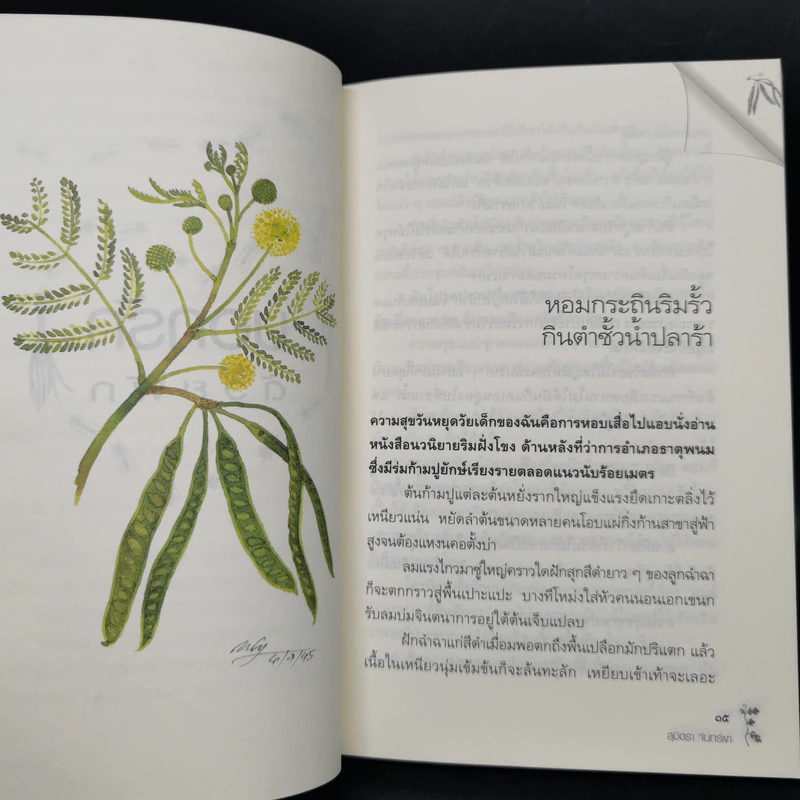 หอมกระถินริมรั้ว
กินตำซั้วน้ำปลาร้า
ความสุขวันหยุดวัยเด็กของฉันคือการหอบเสื่อไปแอบนั่งอ่าน
หนังสือนวนิยายริมฝั่งโขง ด้านหลังที่ว่าการอำเภอธาตุพนม
ซึ่งมีร่มก้ามปูยักษ์เรียงรายตลอดแนวนับร้อยเมตร
ต้นก้ามปูแต่ละต้นหยั่งรากใหญ่แข็งแรงยึดเกาะตลิ่งไว้
เหนียวแน่น หยัดลำต้นขนาดหลายคนโอบแผ่กิ่งก้านสาขาสู่ฟ้า
สูงจนต้องแหงนคอตั้งบ่า
ลมแรงไกวมาซู่ใหญ่คราวใดฝักสุกสีดำยาว ๆ ของลูกฉำฉา
ก็จะตกกราวสู่พื้นเปาะแปะ บางทีโหม่งใส่หัวคนนอนเอกเขนก
รับลมบ่มจินตนาการอยู่ใต้ต้นเจ็บแปลบ
ฝักฉำฉาแก่สีดำเมื่อมพอตกถึงพื้นเปลือกมักปริแตก แล้ว
เนื้อในเหนียวนุ่มเข้มข้นก็จะล้นทะลัก เหยียบเข้าเท้าจะเลอะ
๑๕
สุมิตรา จันทร์เงา
6/9/45